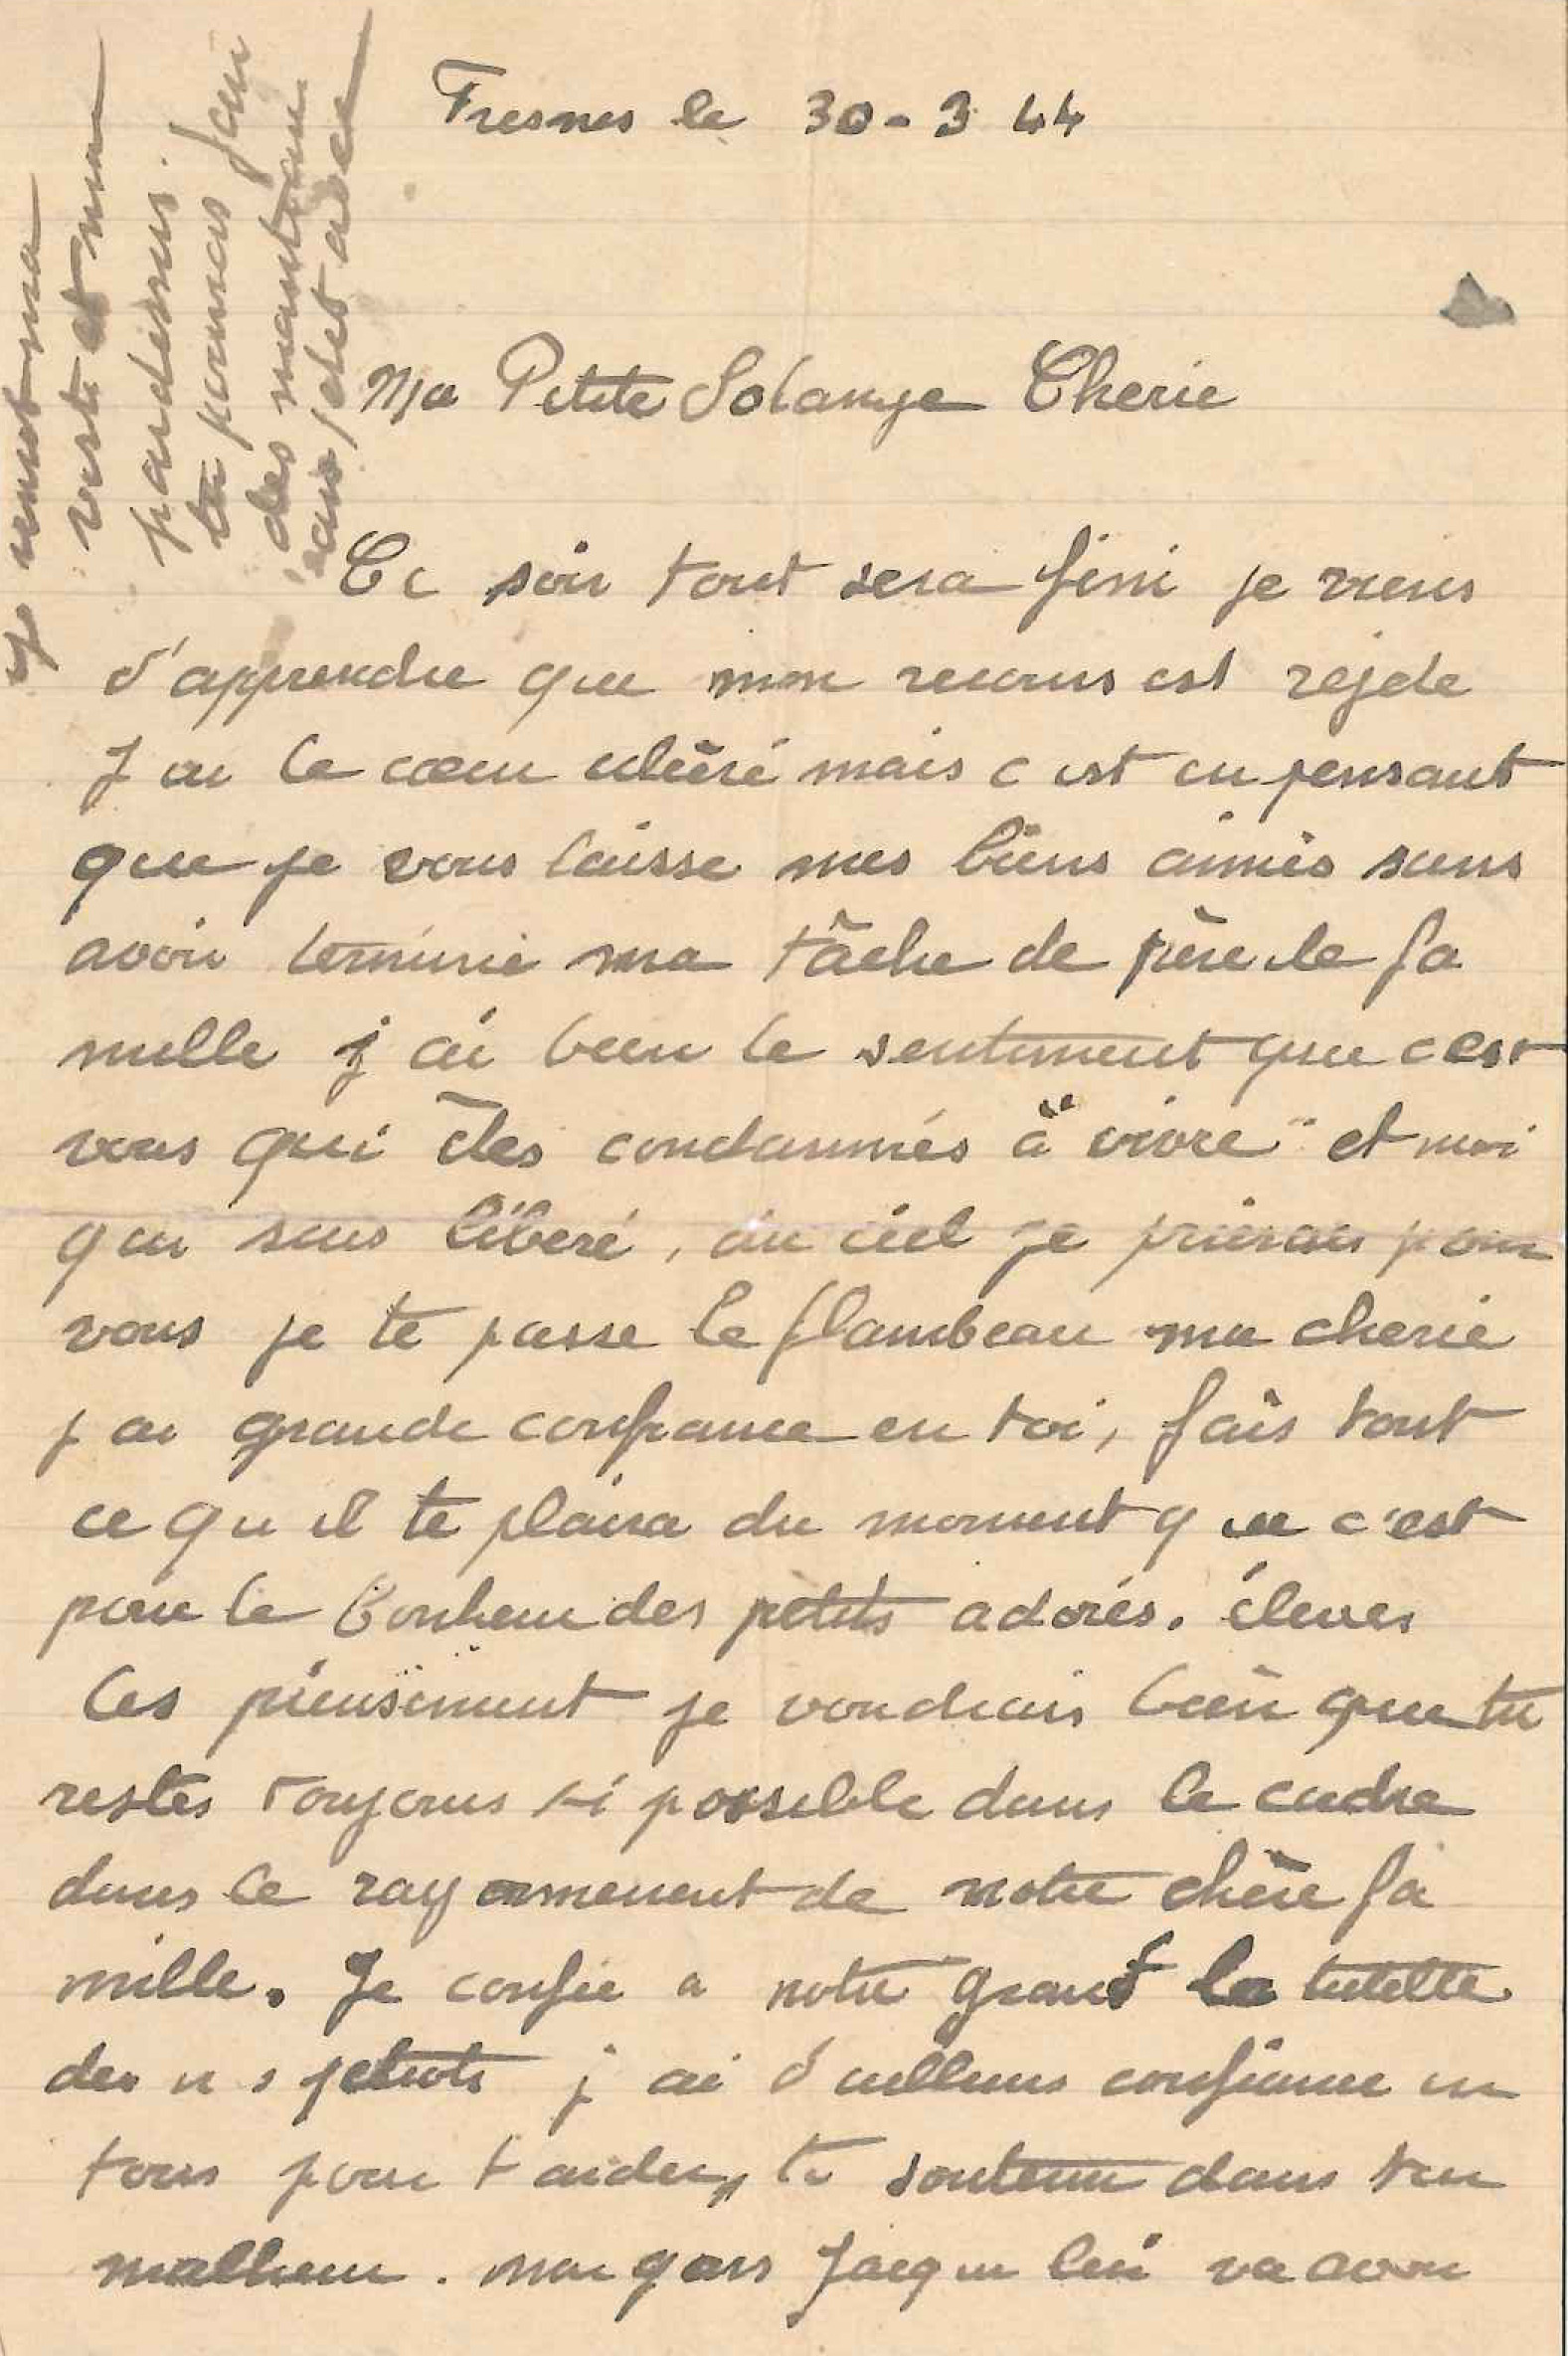 Fresnes le 30-3 44
Ma Petite Solange Cherie
Ce soir tout sera fini je viens
d'apprendre que mon recours est rejete
J ai le cœur ulcéré mais c est en pensant
que je vous laisse mes biens aimés sans
avoir terminé ma tâche de père de fa
mille j ai bien le sentiment que c est
vous qui êtes condamnés à "vivre" et moi
qui suis libéré, au ciel je prierais pour
vous je te passe le flambeau ma cherie
j ai grande confiance en toi, fais tout
ce qu il te plaira du moment que c'est
pour le bonheur des petits adorés. éleves
les pieusement je voudrais bien que tu
restes toujours si possible dans le cadre
dans le rayonnement de notre chère fa
mille. Je confie a notre grand la tutelle
des n s petiots j ai d ailleurs confiance en
tous pour t aider, te soutenir dans ton
malheur. mon gars Jacques lui va avoir
je remet ma
veste et mon
pardessus.
tu pourras faire
des manteaux